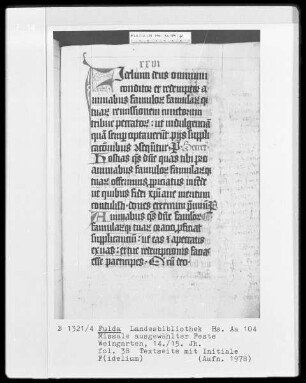 XXVI
Fidelium deus omnium
conditor et redemptor a
animabus famulor famularq
tuar remissionem cunctorum
tribue peccator: ut indulgenciā
quā semp optaverunt pijs suppli
cationibus
Hostias qs dne quas tibi pro
animabus famulor famularūq
tuar offerimus, ꝓpiciatus intēde
ut quibus fidei xpiane meritum
contulisti, dones et premium
Animabus qs dne famulor
famularūq tuar oracio ꝓficiat
supplicancium: ut eas et a peccatis
exuas: et tue redempcionis facias
esse participes
2 1321/4 Fulda Landesbibliothek Hs. Aa 104
Missale ausgewählter Feste
Weingarten, 14./15. Jh.
fol. 38 Textseite mit Initiale
F(idelium) (Aufn. 1978)